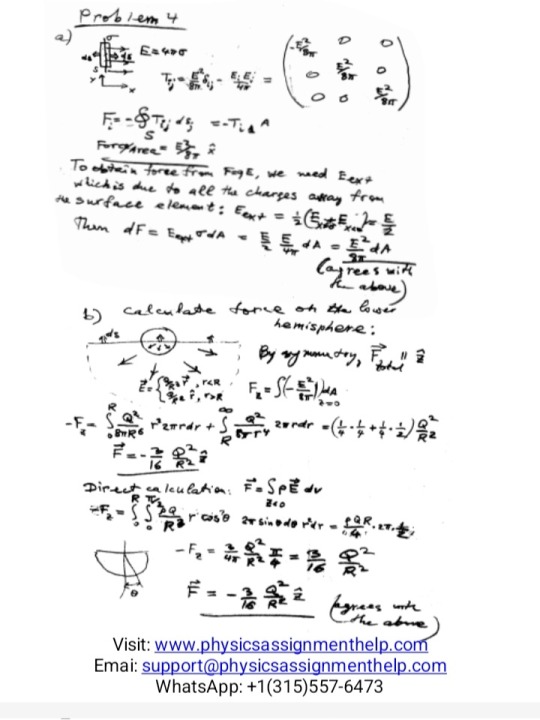 Problem 4
a) σ E=4πσ
ds ds
S
y x
T_ij = E²/8π δ_ij - E_i E_j/4π = ( -E²/8π 0 0
0 E²/8π 0
0 0 E²/8π )
F_i = -∮_S T_ij ds_j = -T_i1 A
Force/Area = E²/8π x̂
To obtain force from F=qE, we need E_ext
which is due to all the charges away from
the surface element: E_ext = ½(E + E) = E/2
Then dF = E_ext σ dA = E/2 E/4π dA = E²/8π dA
(agrees with
the above)
b) calculate force on the lower
hemisphere:
ds
By symmetry, F⃗_total ∥ ẑ
E⃗ = { r⃗, r<R
Q/r² r̂, r>R
F_z = ∫(-E²/8π) dA
z=0
-F_z = ∫₀^R Q²/8πR⁶ r² 2πr dr + ∫_R^∞ Q²/8πr⁴ 2πr dr = (¼·¼ + ¼·½) Q²/R²
F⃗ = -3/16 Q²/R² ẑ
Direct calculation: F⃗ = ∫ρE⃗ dv
z<0
-F_z = ∫₀^R ∫₀^π/2 ρQ/R³ r cosθ 2π sinθ dθ r² dr = ρQR/4 · 2π · ½
-F_z = 3/4π Q²/R² π/4 = 3/16 Q²/R²
θ
F⃗ = -3/16 Q²/R² ẑ (agrees with
the above)
Visit: www.physicsassignmenthelp.com
Emai: support@physicsassignmenthelp.com
WhatsApp: +1(315)557-6473